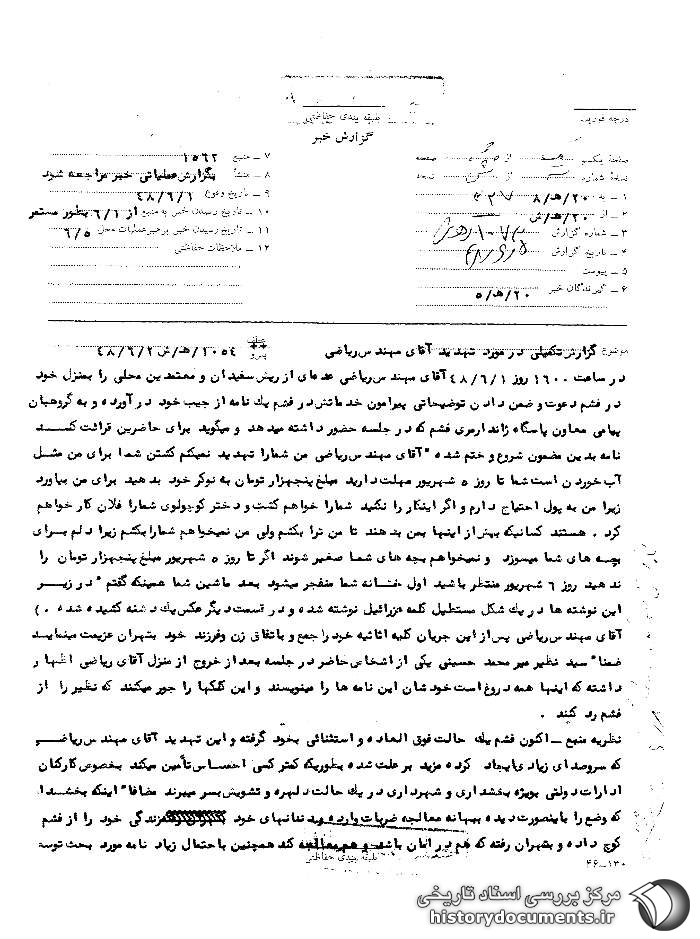 طبقه بندی حفاظتی
گزارش خبر
درجه فوریت
صفحه یکم از صفحه
نسخه شماره از نسخه
۱ – به ۲۰ه‍/۸
۲ – از ۲۰ه‍/ش
۳ – شماره گزارش
۴ – تاریخ گزارش
۵ – پیوست
۶ – گیرندگان خبر ۲۰ه‍/۵
۷ – منبع ۱۵۶۲
۸ – منشأ بگزارش عملیاتی خبر مراجعه شود
۹ – تاریخ وقوع ۴۸/۶/۱
۱۰ – تاریخ رسیدن خبر به منبع از ۶/۱ بطور مستمر
۱۱ – تاریخ رسیدن خبر برهبر عملیات محل ۶/۵
۱۲ – ملاحظات حفاظتی
موضوع گزارش تکمیلی در مورد تهدید آقای مهندس ریاضی پیرو ۱۰۵۴/ه‍/ش ۴۸/۶/۲
در ساعت ۱۶۰۰ روز ۴۸/۶/۱ آقای مهندس ریاضی عده‌ای از ریش سفیدان و معتمدین محلی را بمنزل خود
در فشم دعوت و ضمن دادن توضیحاتی پیرامون خدماتش در فشم یك نامه از جیب خود در آورده و به گروهبان
بیامی معاون پاسگاه ژاندارمری فشم که در جلسه حضور داشته میدهد و میگوید برای حاضرین قرائت کنند
نامه بدین مضمون شروع و ختم شده "آقای مهندس ریاضی من شما را تهدید نمیکنم کشتن شما برای من مثل
آب خوردن است شما تا روز ۵ شهریور مهلت دارید مبلغ پنجهزار تومان به نوکر خود بدهید برای من بیاورد
زیرا من به پول احتیاج دارم و اگر اینکار را نکنید شمارا خواهم کشت و دختر کوچولوی شما را فلان کار خواهم
کرد . هستند کسانیکه بیش از اینها بمن بدهند تا من ترا بکشم ولی من نمیخواهم شما را بکشم زیرا دلم برای
بچه های شما میسوزد و نمیخواهم بچه های شما صغیر شوند اگر تا روز ۵ شهریور مبلغ پنجهزار تومان را
ندهید روز ۶ شهریور منتظر باشید اول خانه شما منفجر میشود بعد ماشین شما همینکه گفتم " در زیر
این نوشته ها در یك شکل مستطیل کلمه عزرائیل نوشته شده و در قسمت دیگر عکس یك دشنه کشیده شده .)
آقای مهندس ریاضی پس از این جریان کلیه اثاثیه خود را جمع و باتفاق زن و فرزند خود بتهران عزیمت مینماید
ضمنا" سید نظیر میر محمد حسینی یکی از اشخاص حاضر در جلسه بعد از خروج از منزل آقای ریاضی اظهار
داشته که اینها همه دروغ است خودشان این نامه ها را مینویسند و این کلکها را جور میکنند که نظیر را از
فشم رد کنند .
نظریه منبع – اکنون فشم یك حالت فوق العاده و استثنائی بخود گرفته و این تهدید آقای مهندس ریاضی
که سروصدای زیادی ایجاد کرده مزید بر علت شده بطوریکه کمتر کسی احساس تأمین میکند بخصوص کارکنان
ادارات دولتی بویژه بخشداری و شهرداری در یك حالت دلهره و تشویش بسر میبرند مضافا" اینکه بخشدار
که وضع را باینصورت دیده ببهانه معالجه ضربات وارده بدندانهای خود زندگی خود را از فشم
کوچ داده و بتهران رفته که هم در امان باشد و هم معالجه کند همچنین باحتمال زیاد نامه مورد بحث توسط
طبقه بندی حفاظتی
۴۶–۱۳۰
مرکز بررسی اسناد تاریخی
historydocuments.ir